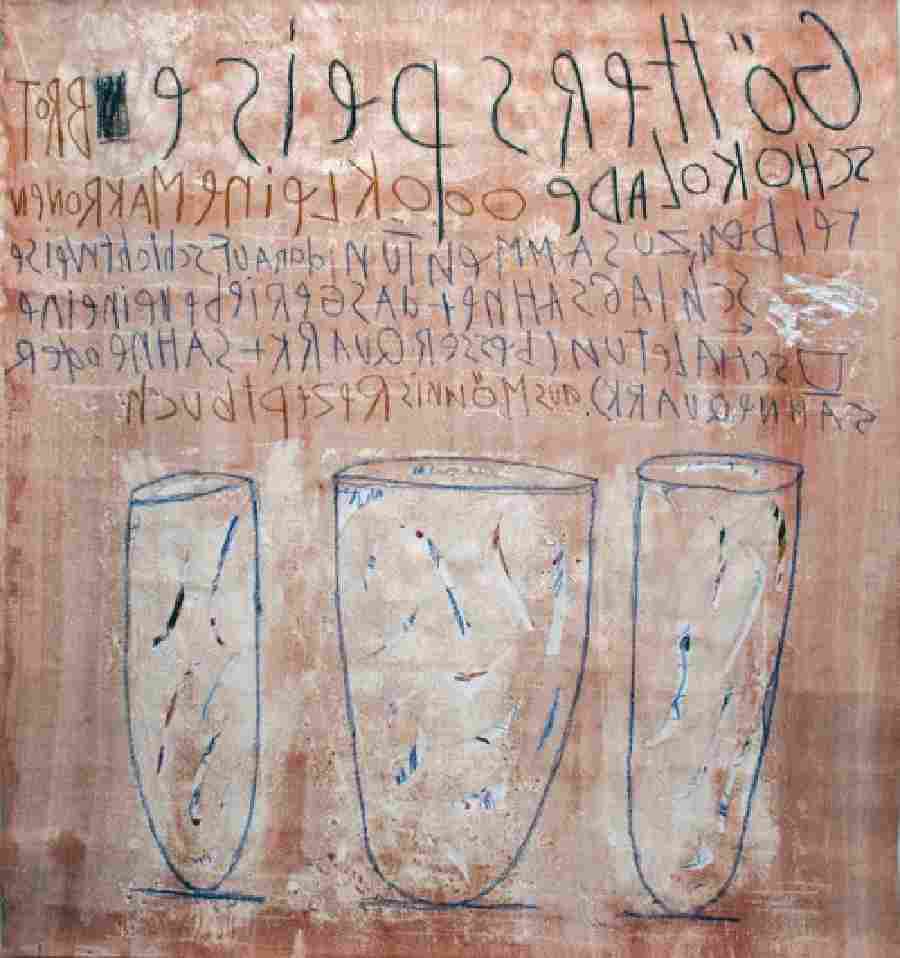 Götterspeise BRoT
SCHOKoLADe odo KLeine MAKRONeN
reiben ZUSAMMeN TUN darauf schichtweise
SchlAGSAHNe + dASGeRiebene in eine
SCHALe TUN (besser QUARK + SAHNe oder
SAHNeQUARK). aus Mönnis Rezeptbuch